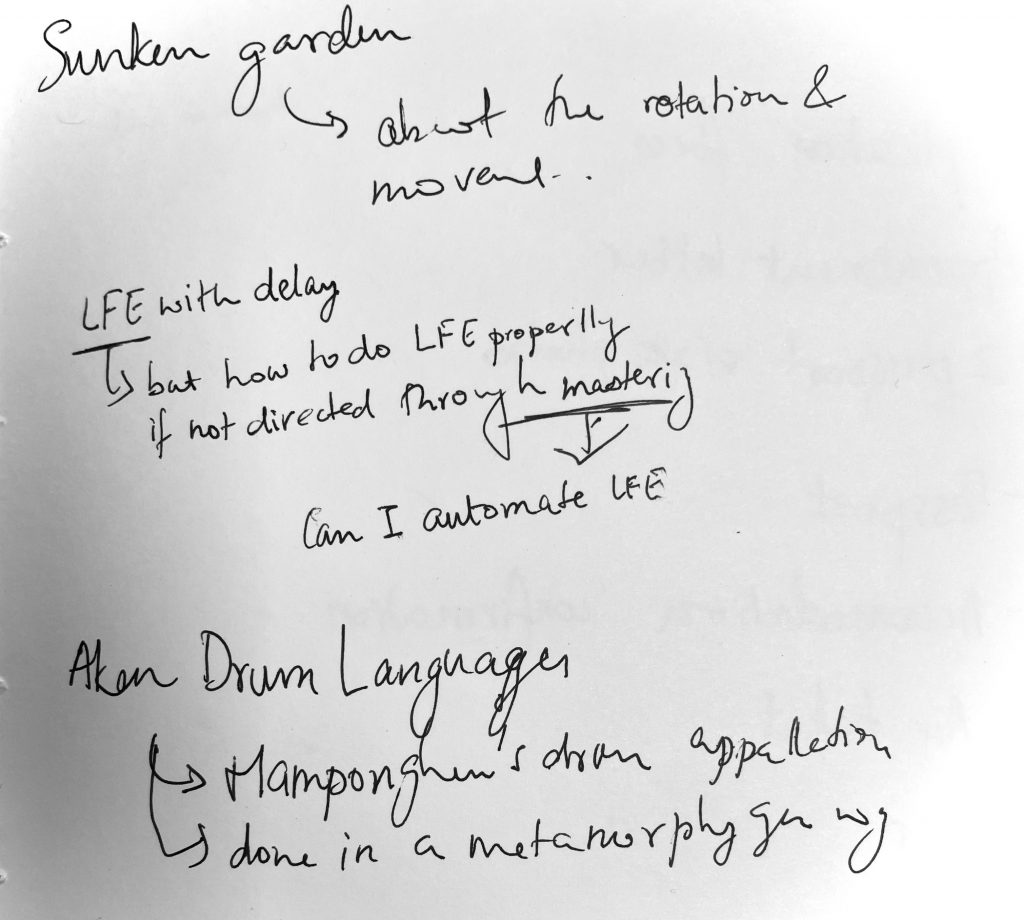 Sunken garden
↳ about the rotation &
movent..
LFE with delay
↳ but how to do LFE properlly
if not directed through masterig
Can I automate LFE
Akan Drum Languages
↳ Mamponghen's drum appalletion
↳ done in a